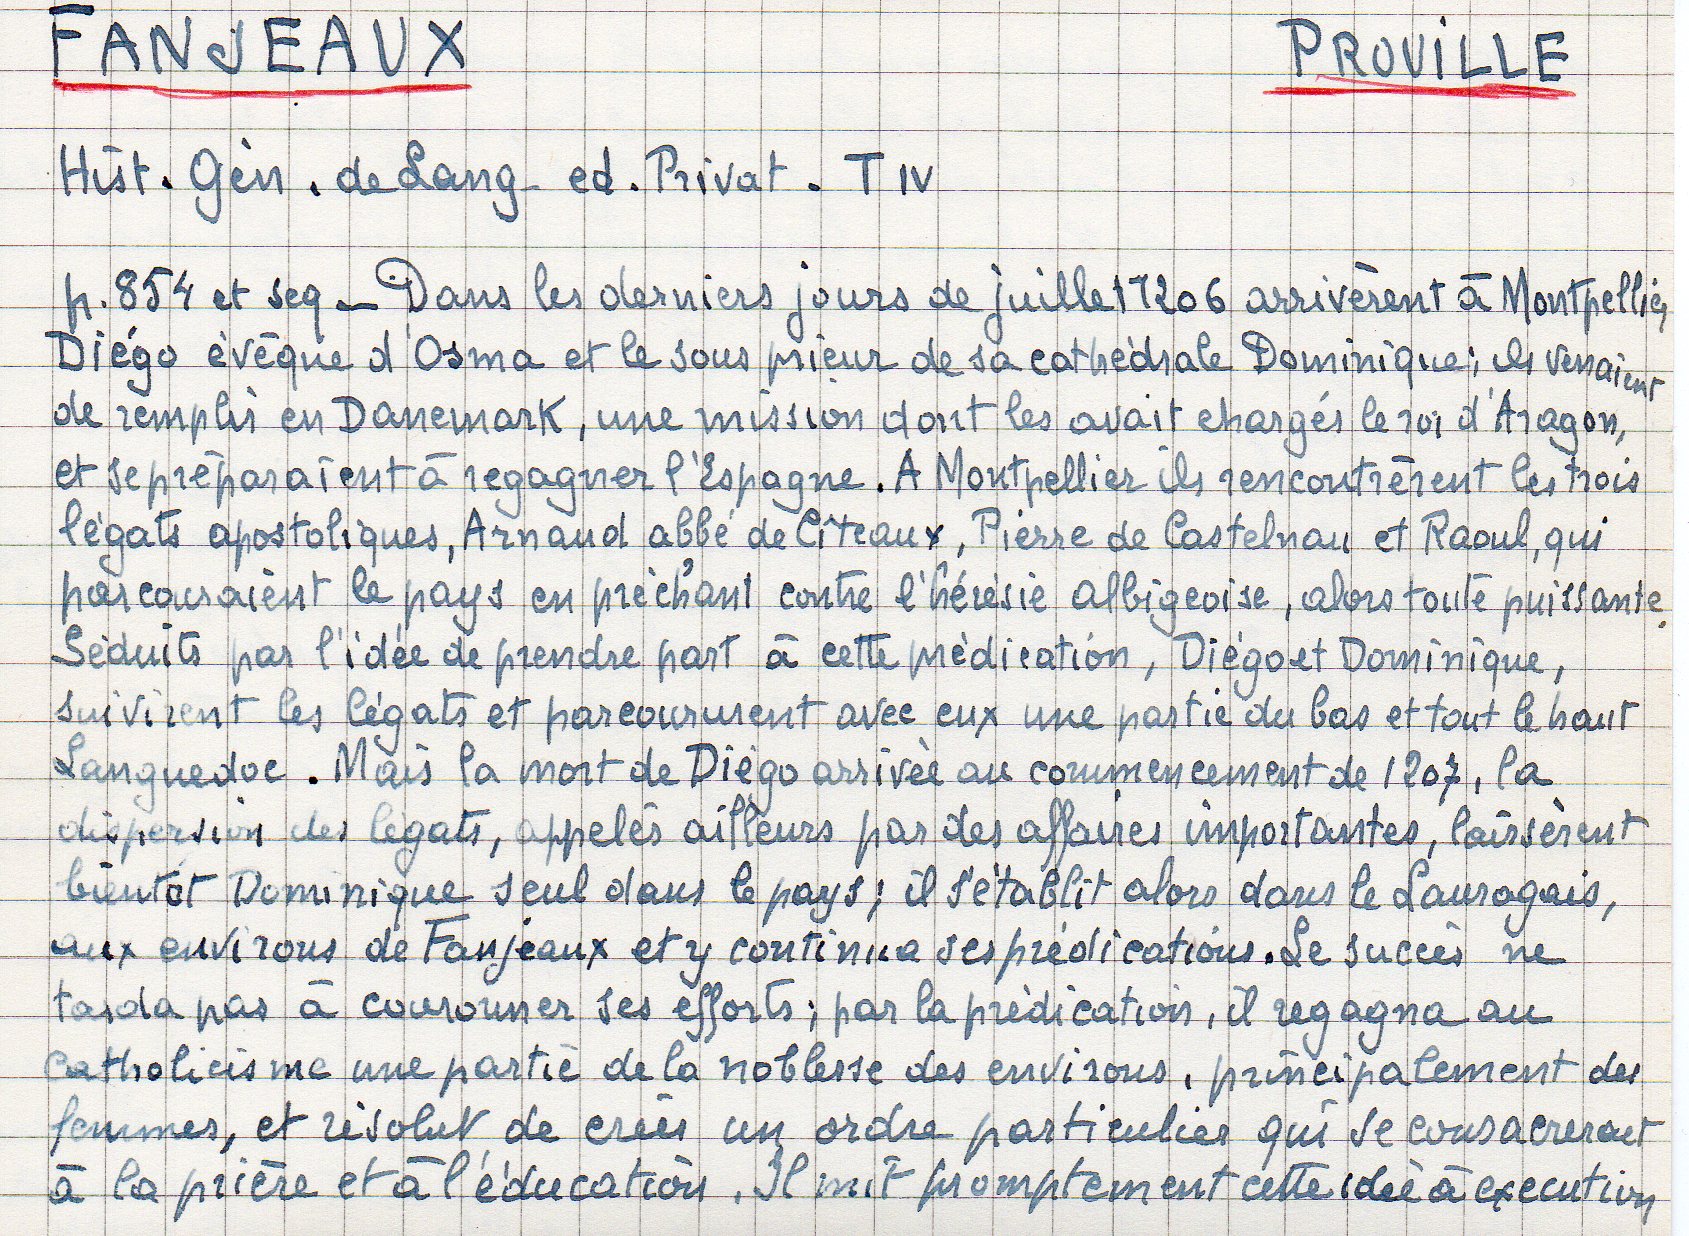 FANJEAUX PROUILLE
Hist. Gén. de Lang - ed. Privat. T IV
p. 854 et seq - Dans les derniers jours de juillet 1206 arrivèrent à Montpellier,
Diégo évêque d'Osma et le sous prieur de sa cathédrale Dominique; ils venaient
de remplir en Danemark, une mission dont les avait chargés le roi d'Aragon,
et se préparaient à regagner l'Espagne. A Montpellier ils rencontrèrent les trois
légats apostoliques, Arnaud abbé de Cîteaux, Pierre de Castelnau et Raoul, qui
parcouraient le pays en prêchant contre l'hérésie albigeoise, alors toute puissante.
Séduits par l'idée de prendre part à cette prédication, Diégo et Dominique,
suivirent les légats et parcoururent avec eux une partie du bas et tout le haut
Languedoc. Mais la mort de Diégo arrivée au commencement de 1207, la
dispersion des légats, appelés ailleurs par des affaires importantes, laissèrent
bientôt Dominique seul dans le pays; il s'établit alors dans le Lauragais,
aux environs de Fanjeaux et y continua ses prédications. Le succès ne
tarda pas à couronner ses efforts; par la prédication, il regagna au
catholicisme une partie de la noblesse des environs, principalement des
femmes, et résolut de créer un ordre particulier qui se consacrerait
à la prière et à l'éducation. Il mit promptement cette idée à exécution